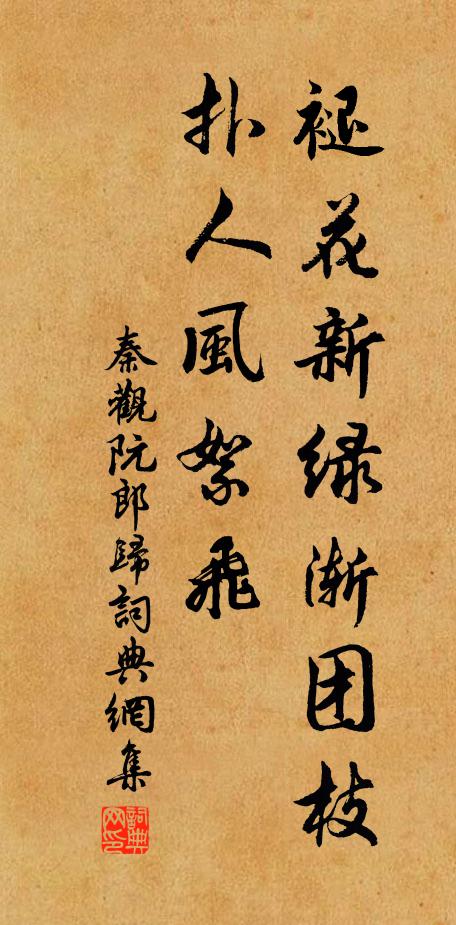 褪花新緑渐团枝
扑人風絮飛
秦觀阮郎歸詞典網集
詞典网印